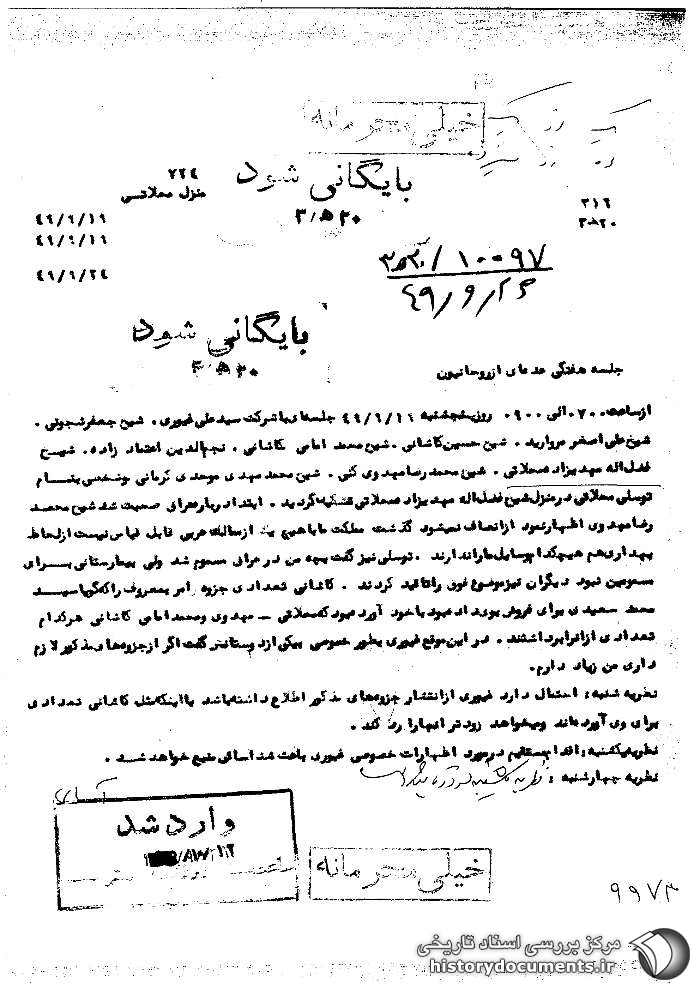 خیلی محرمانه
بایگانی شود
۳۰۵۲۰
۷۲۴
منزل محلاتی
۳۱۶
۴۹/۹/۱۹
۴۹/۹/۱۹
۴۹/۹/۲۴
۱۰۰۹۷ /
۴۹/۹/۲۶
بایگانی شود
جلسه هفتگی عده‌ای از روحانیون
از ساعت ۷۰۰ الی ۹۰۰ روز پنجشنبه ۴۹/۹/۱۹ جلسه‌ای با شرکت سید علی غیوری . شیخ جعفر شجونی .
شیخ علی اصغر مروارید . شیخ حسین کاشانی . شیخ محمد امامی کاشانی . نجم‌الدین اعتماد زاده . شیخ
فضل‌اله مهدیزاد محلاتی . شیخ محمد رضا مهدوی کنی . شیخ محمد مهدی موحدی کرمانی و شخصی بنام
توسلی محلاتی در منزل شیخ فضل‌اله مهدیزاد محلاتی تشکیل گردید . ابتدا درباره عراق صحبت شد شیخ محمد
رضا مهدوی اظهار نمود از انصاف نمیشود گذشت مملکت ما با هیچ یک از ممالک عربی قابل قیاس نیست از لحاظ
بهداری هم هیچکدام وسایل ما را ندارند . توسلی نیز گفت بچه من در عراق مسموم شد ولی بیمارستانی برای
مسمومین نبود دیگران نیز موضوع فوق را تائید کردند . کاشانی تعدادی جزوه امر بمعروف را که گویا سید
محمد سعیدی برای فروش بوی داده بود با خود آورده بود که محلاتی - مهدوی و محمد امامی کاشانی هر کدام
تعدادی از آنرا برداشتند . در این موقع غیوری بطور خصوصی بیکی از دوستانش گفت اگر از جزوه‌های مذکور لازم
داری من زیاد دارم.
نظریه شنبه : احتمال دارد غیوری از انتشار جزوه‌های مذکور اطلاع داشته باشد یا اینکه مثل کاشانی تعدادی
برای وی آورده‌اند و میخواهد زودتر آنها را رد کند .
نظریه یکشنبه : اقدام مستقیم در مورد اظهارات خصوصی غیوری باعث شناسائی منبع خواهد شد .
نظریه چهارشنبه : نظریه یکشنبه مورد تائید است
وارد شد
خیلی محرمانه
۹۹۷۳
مرکز بررسی اسناد تاریخی
historydocuments.ir